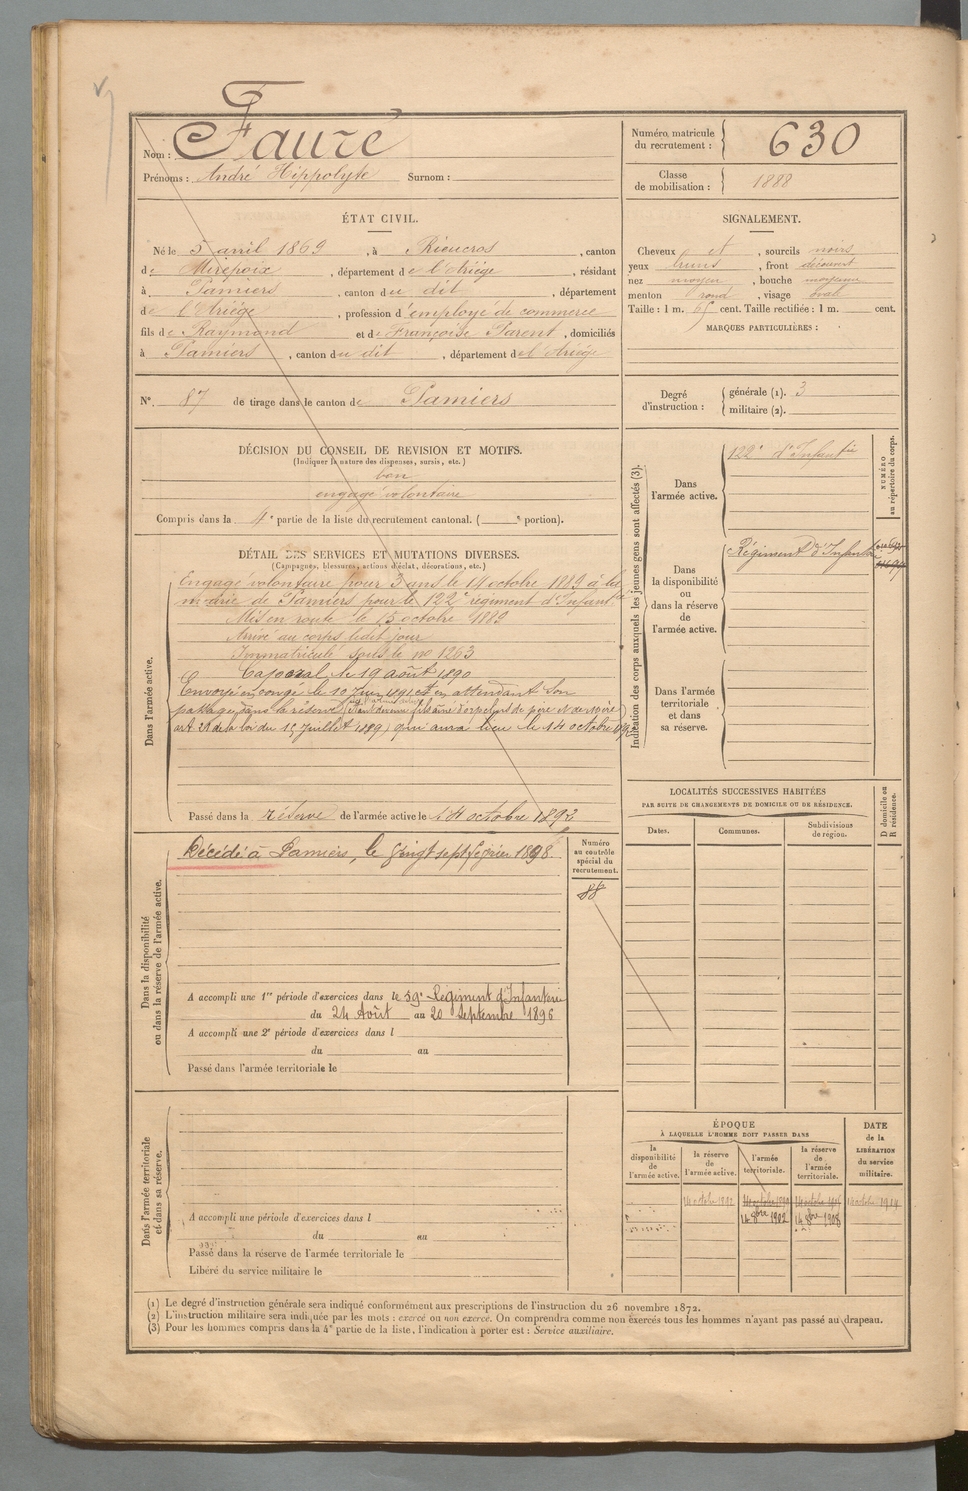 Nom : Fauré
Prénoms : André Hippolyte Surnom :
Numéro matricule du recrutement : 630
Classe de mobilisation : 1888
ÉTAT CIVIL.
Né le 5 avril 1869, à Rieucros, canton
de Mirepoix, département de l'Ariège, résidant
à Pamiers, canton du dit, département
de l'Ariége, profession d'employé de commerce
fils de Raymond et de Françoise Parent, domiciliés
à Pamiers, canton du dit, département de l'Ariége
N°. 87 de tirage dans le canton de Pamiers
SIGNALEMENT.
Cheveux et, sourcils noirs
yeux bruns, front découvert
nez moyen, bouche moyenne
menton rond, visage ovale
Taille : 1 m. 65 cent. Taille rectifiée : 1 m. cent.
MARQUES PARTICULIÈRES :
Degré d'instruction : générale (1). 3
militaire (2).
DÉCISION DU CONSEIL DE REVISION ET MOTIFS.
(Indiquer la nature des dispenses, sursis, etc.)
bon
engagé volontaire
Compris dans la 4e partie de la liste du recrutement cantonal. ( e portion).
DÉTAIL DES SERVICES ET MUTATIONS DIVERSES.
(Campagnes, blessures, actions d'éclat, décorations, etc.)
Dans l'armée active.
Engagé volontaire pour 3 ans le 14 octobre 1889 à la
mairie de Pamiers pour le 122e régiment d'Infanie
Mis en route le 15 octobre 1889
Arrivé au corps ledit jour
Immatriculé sous le no 1263
Caporal le 19 août 1890
Envoyé en congé le 10 Juin 1891 en attendant son
passage dans la réserve (fils aîné d'orphelins de père et de mère
art de la loi du 15 Juillet 1889) qui aura lieu le 14 octobre
Passé dans la réserve de l'armée active le 14 octobre 1892
Indication des corps auxquels les jeunes gens sont affectés (3).
Dans l'armée active.
122e d'Infantie
NUMÉRO au répertoire du corps.
Dans la disponibilité ou dans la réserve de l'armée active.
Régiment d'Infanterie
Dans l'armée territoriale et dans sa réserve.
LOCALITÉS SUCCESSIVES HABITÉES
PAR SUITE DE CHANGEMENTS DE DOMICILE OU DE RÉSIDENCE.
Dates. Communes. Subdivisions de région.
D domicile ou R résidence.
Dans la disponibilité ou dans la réserve de l'armée active.
Décédé à Pamiers, le vingt sept février 1898.
Numéro au contrôle spécial du recrutement.
88
A accompli une 1re période d'exercices dans le 59e Régiment d'Infanterie
du 24 Août au 20 Septembre 1896
A accompli une 2e période d'exercices dans l
du au
Passé dans l'armée territoriale le
Dans l'armée territoriale et dans sa réserve.
A accompli une période d'exercices dans l
du au
Passé dans la réserve de l'armée territoriale le
Libéré du service militaire le
ÉPOQUE
À LAQUELLE L'HOMME DOIT PASSER DANS
la disponibilité de l'armée active.
la réserve de l'armée active.
l'armée territoriale.
la réserve de l'armée territoriale.
DATE de la LIBÉRATION du service militaire.
14 octobre 1892
14 8bre 1902 14 8bre 1908
(1) Le degré d'instruction générale sera indiqué conformément aux prescriptions de l'instruction du 26 novembre 1872.
(2) L'instruction militaire sera indiquée par les mots : exercé ou non exercé. On comprendra comme non exercés tous les hommes n'ayant pas passé au drapeau.
(3) Pour les hommes compris dans la 4e partie de la liste, l'indication à porter est : Service auxiliaire.